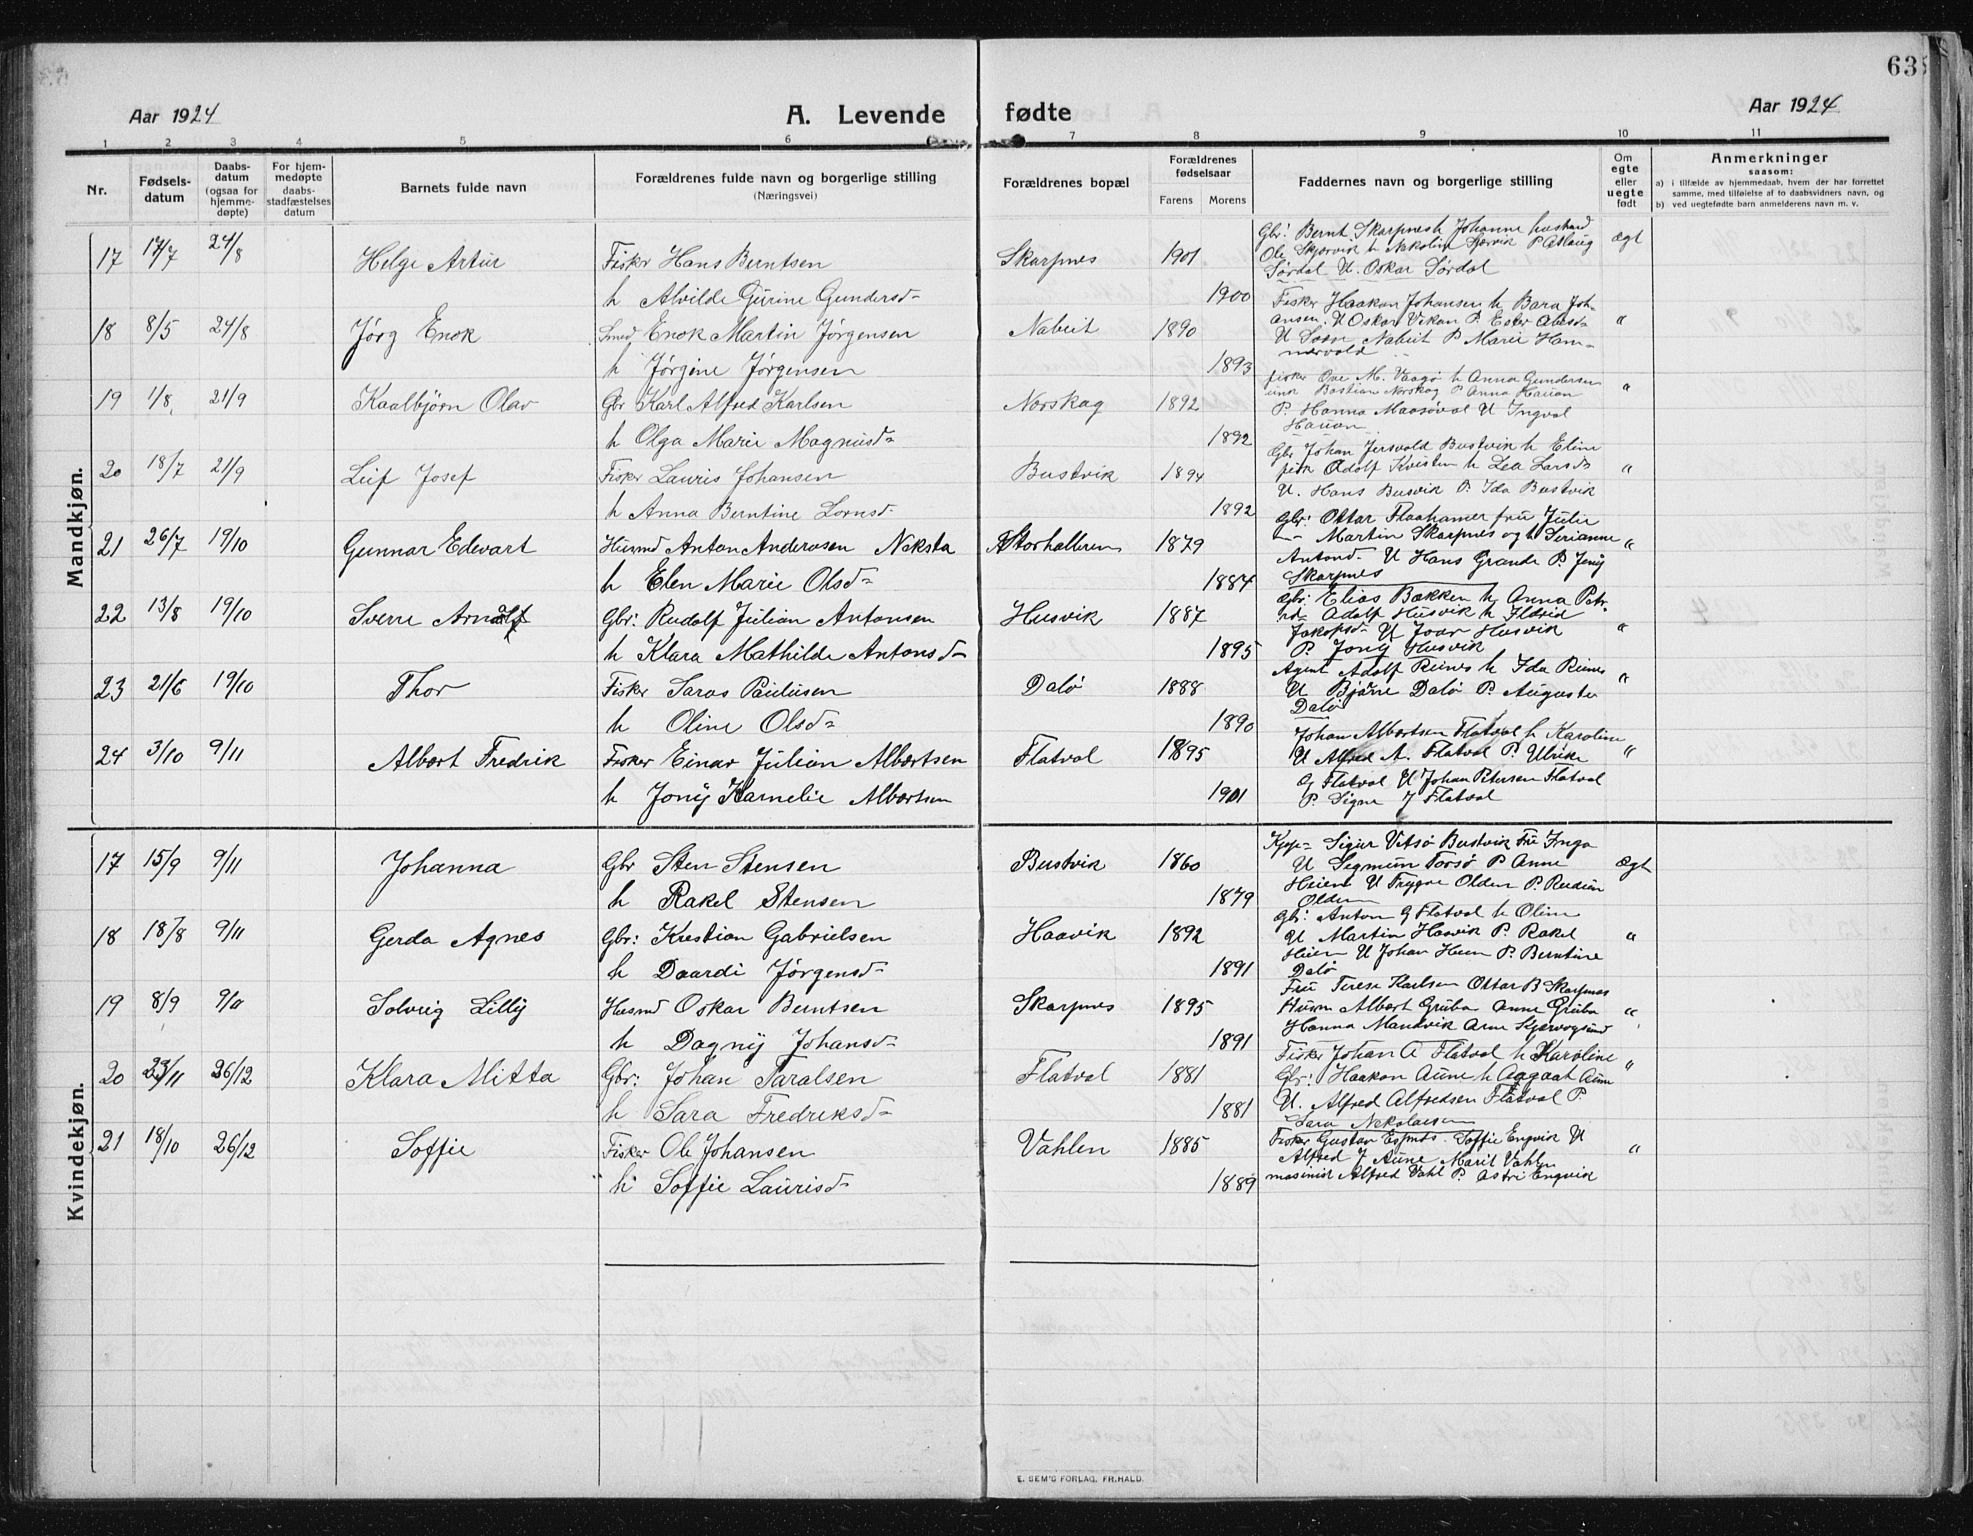 63
Aar 1924
A. Levende fødte
Aar 1924
1 2 3 4 5 6 7 8 9 10 11
Nr.
Fødsels-
datum
Daabs-
datum
(ogsaa for
hjemme-
døpte)
For hjem-
medøpte
daabs-
stadfæstelses
datum
Barnets fulde navn
Forældrenes fulde navn og borgerlige stilling
(Næringsvei)
Forældrenes bopæl
Forældrenes
fødselsaar
Farens Morens
Faddernes navn og borgerlige stilling
Om
egte
eller
uegte
født
Anmerkninger
saasom:
a) i tilfælde av hjemmedaab, hvem der har forrettet
samme, med tilføielse af to daabsvidners navn, og
b) ved uegtefødte barn anmelderens navn m. v.
Mandkjøn.
17 17/7 24/8 Helge Artur Fisker Hans Berntsen Skarpnes 1901 ægt
h Alvilde Gurine Gundersd- 1900
Gbr: Bernt Skarpnes h Johanne
Sørdal U. Oskar Sørdal
18 8/5 24/8 Jørg Enok Smed Enok Martin Jørgensen Nabeit 1890 "
h Jørgine Jørgensen 1893
Fisker Haakon Johansen h Bara Joh-
ansen. U Oskar Vikan P. Ester
U Nabeit P Marie Ham-
mervold
19 1/8 21/9 Kaalbjørn Olav Gbr Karl Alfred Karlsen Norskag 1892 "
h Olga Marie Magnusd- 1892
fisker Ove M. Vaagø h Anna Gundersen
Bastian Norskag P Anna Hauan
P. Hanna Maasøval U Ingval
Hauan
20 18/7 21/9 Leif Josef Fisker Lauris Johansen Bustvik 1894 "
h Anna Berntine Lornsd- 1892
Gbr Johan Bustvik h Eline
fisk Adolf Kvisten h Lea Larsd-
U. Hans Busvik P. Ida Bustvik
21 26/7 19/10 Gunnar Edvart Husmd Anton Andersen Neksta Storhalleren 1879 "
h Elen Marie Olsd- 1884
Gbr: Ottar Flaahamer fru Julie
Martin Skarpnes og h Serianne
Antond. U Hans Grande P. Jenny
Skarpnes
22 13/8 19/10 Sverre Arnolf Gbr: Rudolf Julian Antonsen Husvik 1887 "
h Klara Mathilde Antonsd- 1895
Gbr: Elias Bakken h Anna Petr-
Adolf Husvik h
Jakopsd- U Joar Husvik
P. Jony Husvik
23 21/6 19/10 Thor Fisker Saras Paulusen Dalø 1888 "
h Oline Olsd- 1890
Agent Adolf Reines h Ida Reines
U Bjarne Dalø P. Auguste
Dalø
24 3/10 9/11 Albert Fredrik Fisker Einar Julian Albertsen Flatval 1895 "
h Jony Karnelie Albertsen 1901
Johan Albertsen Flatval h Karoline
U Alfred A. Flatval P. Ulrike
G Flatval U Johan Petersen Flatval
P. Signe J Flatval
Kvindekjøn.
17 15/9 9/11 Johanna Gbr Sten Stensen Bustvik 1860 ægt
h Rakel Stensen 1879
Sigur Vitsø Bustvik Fru Inga
U Sigmun Torsø P Anne
Heien U Trygve Olden P.
Olden
18 18/8 9/11 Gerda Agnes Gbr: Krestian Gabrielsen Haavik 1892 "
h Daardi Jørgensd- 1891
Gbr: Anton G Flatval h Oline
U Martin Havik P. Rakel
Heien U Johan Heien P. Berntine
Dalø
19 8/9 9/11 Solvig Lilly Husmd Oskar Berntsen Skarpnes 1895 "
h Dagny Johansd- 1891
Fru Terese Karlsen Ottar B Skarpnes
Albert Gruba Anne Gruba
Hanna Mandvik Arne
20 23/11 26/12 Klara Mitta Gbr: Johan Taralsen Flatval 1881 "
h Sara Fredriksd- 1881
Fisker Johan A Flatval h Karoline
Gbr: Haakon Aune h Aagaat Aune
U. Alfred Alfredsen Flatval P
Sara Nekolaisen
21 18/10 26/12 Soffie Fisker Ole Johansen Vahlen 1885 "
" h" Soffie Laurisd- 1889
Fisker Gustav Espnes. Soffie Engvik U
Alfred J Aune Marit Vahlen
masinist Alfred Vahl P. Astri Engvik
E. SEM'S FORLAG, FR.HALD.